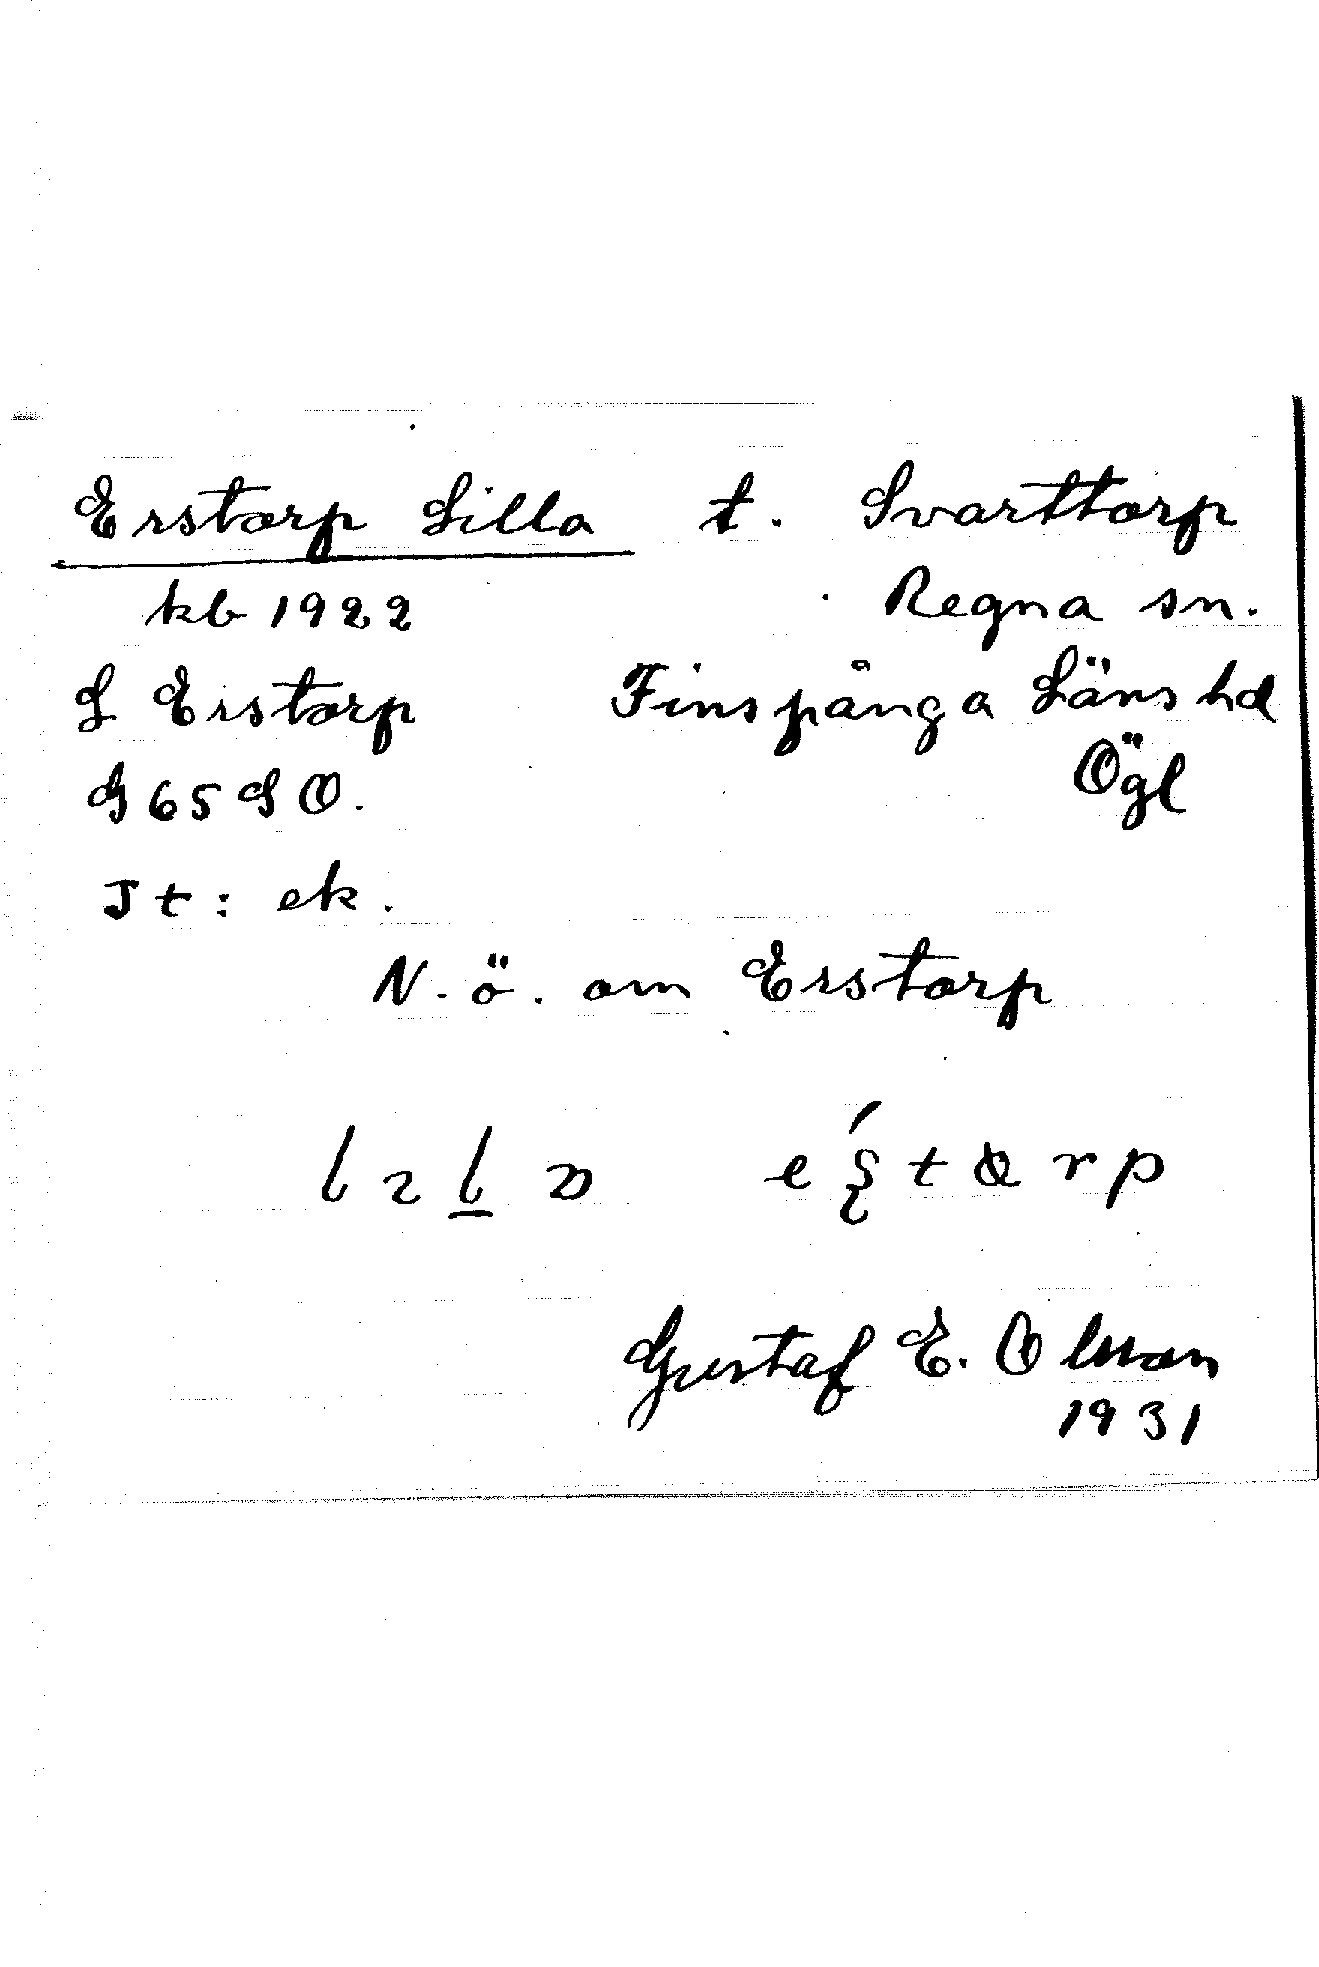 Erstorp Lilla t. Svarttorp
kb 1922 Regna sn.
L Erstorp Finspånga Läns hd
G 65 SO. Ögl
Jt: ek.
N. ö. om Erstorp
Gustaf E. Olsson
1931